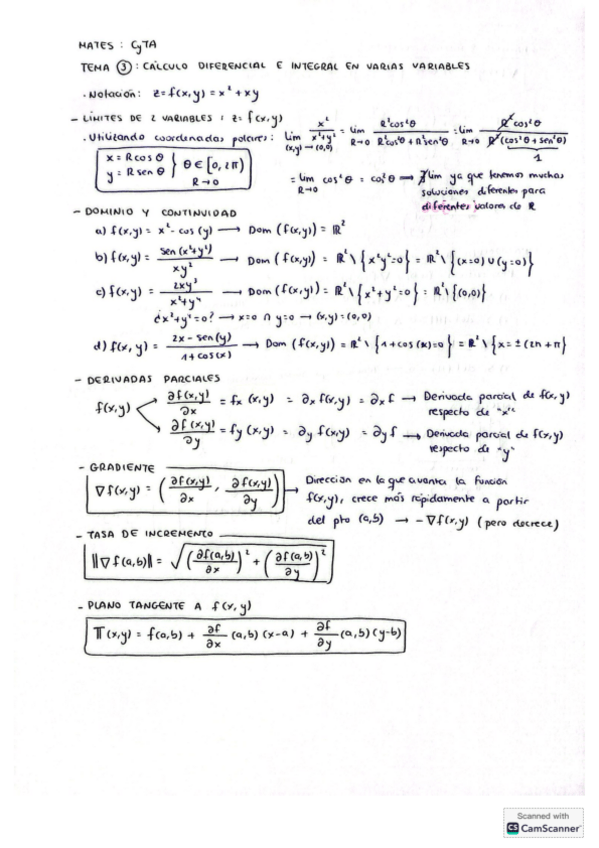 MATES : CyTA
TEMA ③ : CÁLCULO DIFERENCIAL E INTEGRAL EN VARIAS VARIABLES
. Notación: z = f(x,y) = x² + xy
- LÍMITES DE 2 VARIABLES : z = f(x,y)
. Utilizando coordenadas polares: lim (x,y)→(0,0) x²/(x²+y²) = lim R→0 R²cos²θ/(R²cos²θ + R²sen²θ) = lim R→0 R²cos²θ/(R²(cos²θ + sen²θ))
1
x = R cos θ } θ ∈ [0, 2π)
y = R sen θ } R → 0
= lim R→0 cos²θ = cos²θ → ∄ lim ya que tenemos muchas
soluciones diferentes para
diferentes valores de R
- DOMINIO Y CONTINUIDAD
a) f(x,y) = x² - cos(y) → Dom (f(x,y)) = ℝ²
b) f(x,y) = sen(x²+y²)/xy² → Dom (f(x,y)) = ℝ² \ {x²y²=0} = ℝ² \ {(x=0) ∪ (y=0)}
c) f(x,y) = 2xy³/(x²+y⁴) → Dom (f(x,y)) = ℝ² \ {x²+y⁴=0} = ℝ² \ {(0,0)}
¿x²+y²=0? → x=0 ∩ y=0 → (x,y) = (0,0)
d) f(x,y) = (2x - sen(y))/(1+cos(x)) → Dom (f(x,y)) = ℝ² \ {1+cos(x)=0} = ℝ² \ {x = ±(2n + π}
- DERIVADAS PARCIALES
f(x,y)
∂f(x,y)/∂x = fx (x,y) = ∂x f(x,y) = ∂x f → Derivada parcial de f(x,y)
respecto de "x"
∂f(x,y)/∂y = fy (x,y) = ∂y f(x,y) = ∂y f → Derivada parcial de f(x,y)
respecto de "y"
- GRADIENTE
∇f(x,y) = (∂f(x,y)/∂x , ∂f(x,y)/∂y) → Direccion en la que avanta la función
f(x,y), crece más rápidamente a partir
del pto (a,b) → -∇f(x,y) (pero decrece)
- TASA DE INCREMENTO
‖∇f(a,b)‖ = √((∂f(a,b)/∂x)² + (∂f(a,b)/∂y)²)
- PLANO TANGENTE A f(x,y)
π(x,y) = f(a,b) + ∂f/∂x (a,b)(x-a) + ∂f/∂y (a,b)(y-b)
Scanned with
CS CamScanner